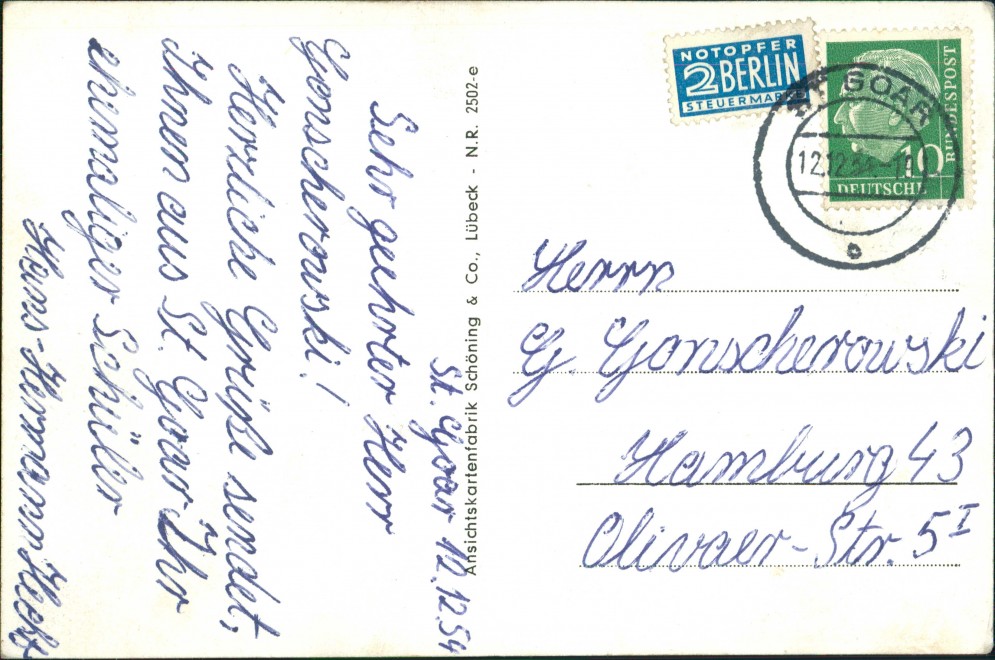 St. Goar 12.12.54
Sehr geehrter Herr
Gonscherowski!
Herzliche Grüße sendet,
Ihnen aus St. Goar Ihr
ehemaliger Schüler
Heins-Hermann
Ansichtskartenfabrik Schöning & Co., Lübeck - N.R. 2502-e
NOTOPFER
2 BERLIN
STEUERMARKE
ST GOAR
12.12.54
b
10
DEUTSCHE
BUNDESPOST
Herrn
G. Gonscherowski
Hamburg 43
Olivaer-Str. 5 I